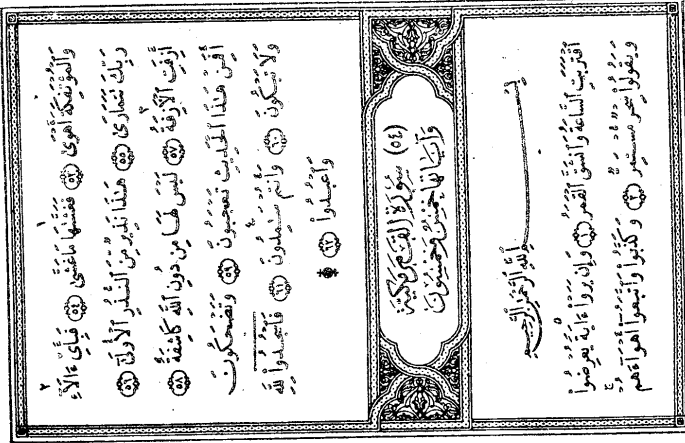 وَٱلْمُؤْتَفِكَةَ أَهْوَىٰ ﴿٥٣﴾ فَغَشَّىٰهَا مَا غَشَّىٰ ﴿٥٤﴾ فَبِأَىِّ ءَالَآءِ
رَبِّكَ تَتَمَارَىٰ ﴿٥٥﴾ هَٰذَا نَذِيرٌ مِّنَ ٱلنُّذُرِ ٱلْأُولَىٰٓ ﴿٥٦﴾
أَزِفَتِ ٱلْأَزِفَةُ ﴿٥٧﴾ لَيْسَ لَهَا مِن دُونِ ٱللَّهِ كَاشِفَةٌ ﴿٥٨﴾
أَفَمِنْ هَٰذَا ٱلْحَدِيثِ تَعْجَبُونَ ﴿٥٩﴾ وَتَضْحَكُونَ
وَلَا تَبْكُونَ ﴿٦٠﴾ وَأَنتُمْ سَٰمِدُونَ ﴿٦١﴾ فَٱسْجُدُوا۟ لِلَّهِ
وَٱعْبُدُوا۟ ﴿٦٢﴾
(٥٤) سُورَةُ القَمَرِ مَكِّيَّة
وَآيَاتُهَا خَمْسٌ وَخَمْسُونَ
بِسْمِ ٱللَّهِ ٱلرَّحْمَٰنِ ٱلرَّحِيمِ
ٱقْتَرَبَتِ ٱلسَّاعَةُ وَٱنشَقَّ ٱلْقَمَرُ ﴿١﴾ وَإِن يَرَوْا۟ ءَايَةً يُعْرِضُوا۟
وَيَقُولُوا۟ سِحْرٌ مُّسْتَمِرٌّ ﴿٢﴾ وَكَذَّبُوا۟ وَٱتَّبَعُوٓا۟ أَهْوَآءَهُمْ